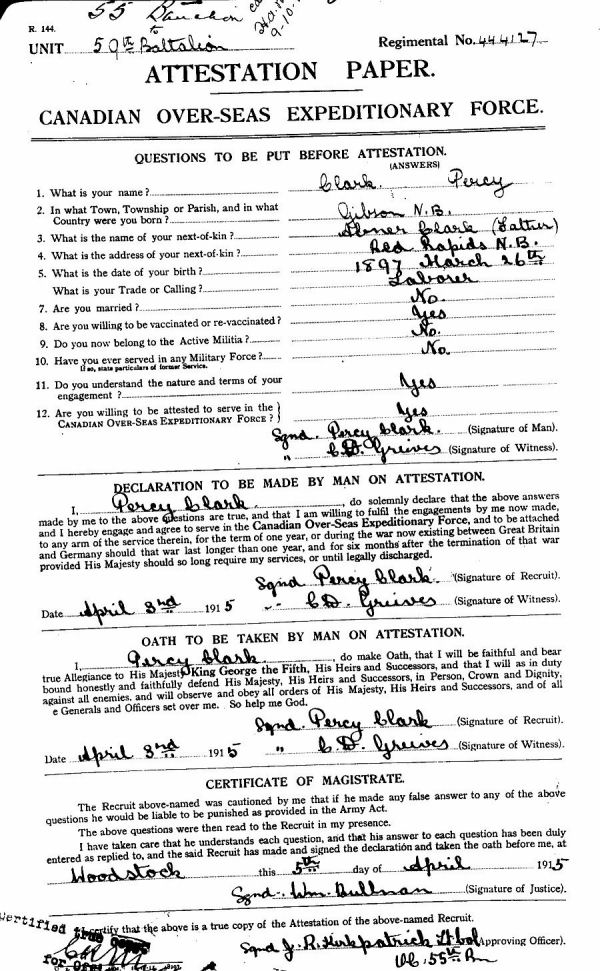 55 Battalion
to
9-10-
R. 144.
UNIT 59th Battalion Regimental No. 444127
ATTESTATION PAPER.
CANADIAN OVER-SEAS EXPEDITIONARY FORCE.
QUESTIONS TO BE PUT BEFORE ATTESTATION.
(ANSWERS)
1. What is your name? Clark Percy
2. In what Town, Township or Parish, and in what
Country were you born? Gibson N.B.
3. What is the name of your next-of-kin? Abner Clark (Father)
4. What is the address of your next-of-kin? Red Rapids N.B.
5. What is the date of your birth? 1897 March 26th
What is your Trade or Calling? Laborer
7. Are you married? No.
8. Are you willing to be vaccinated or re-vaccinated? Yes
9. Do you now belong to the Active Militia? No.
10. Have you ever served in any Military Force? No.
If so, state particulars of former Service.
11. Do you understand the nature and terms of your
engagement? Yes
12. Are you willing to be attested to serve in the
CANADIAN OVER-SEAS EXPEDITIONARY FORCE? } Yes
Sgnd. Percy Clark. (Signature of Man).
" C.D. Grieves (Signature of Witness).
DECLARATION TO BE MADE BY MAN ON ATTESTATION.
I, Percy Clark, do solemnly declare that the above answers
made by me to the above questions are true, and that I am willing to fulfil the engagements by me now made,
and I hereby engage and agree to serve in the Canadian Over-Seas Expeditionary Force, and to be attached
to any arm of the service therein, for the term of one year, or during the war now existing between Great Britain
and Germany should that war last longer than one year, and for six months after the termination of that war
provided His Majesty should so long require my services, or until legally discharged.
Sgnd Percy Clark. (Signature of Recruit).
Date April 3nd 1915 " C.D. Grieves (Signature of Witness).
OATH TO BE TAKEN BY MAN ON ATTESTATION.
I, Percy Clark, do make Oath, that I will be faithful and bear
true Allegiance to His Majesty King George the Fifth, His Heirs and Successors, and that I will as in duty
bound honestly and faithfully defend His Majesty, His Heirs and Successors, in Person, Crown and Dignity,
against all enemies, and will observe and obey all orders of His Majesty, His Heirs and Successors, and of all
e Generals and Officers set over me. So help me God.
Sgnd Percy Clark (Signature of Recruit).
Date April 3nd 1915 " C.D. Grieves (Signature of Witness).
CERTIFICATE OF MAGISTRATE.
The Recruit above-named was cautioned by me that if he made any false answer to any of the above
questions he would be liable to be punished as provided in the Army Act.
The above questions were then read to the Recruit in my presence.
I have taken care that he understands each question, and that his answer to each question has been duly
entered as replied to, and the said Recruit has made and signed the declaration and taken the oath before me, at
Woodstock this 5th day of April 1915
Sgnd. Wm. Bullman (Signature of Justice).
Certified true
certify that the above is a true copy of the Attestation of the above-named Recruit.
Sgnd J. R. Kirkpatrick Lt Col (Approving Officer).
for
OC. 55th Bn